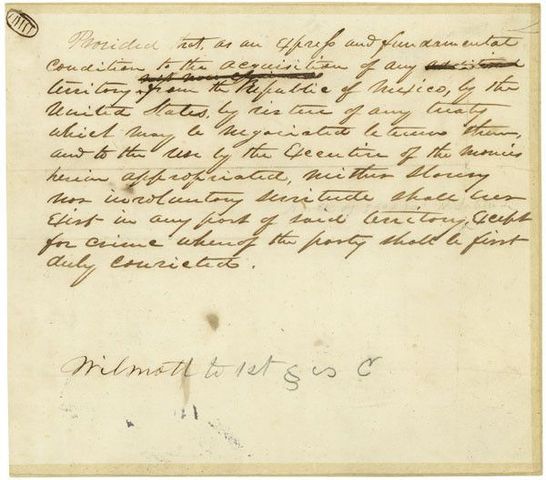 Provided that, as an express and fundamental
condition to the acquisition of any
territory from the Republic of Mexico, by the
United States, by virtue of any treaty
which may be negociated between them,
and to the use by the Executive of the monies
herein appropriated, neither slavery
nor involuntary servitude shall ever
exist in any part of said territory, except
for crime whereof the party shall be first
duly convicted.
Wilmott to 1st §